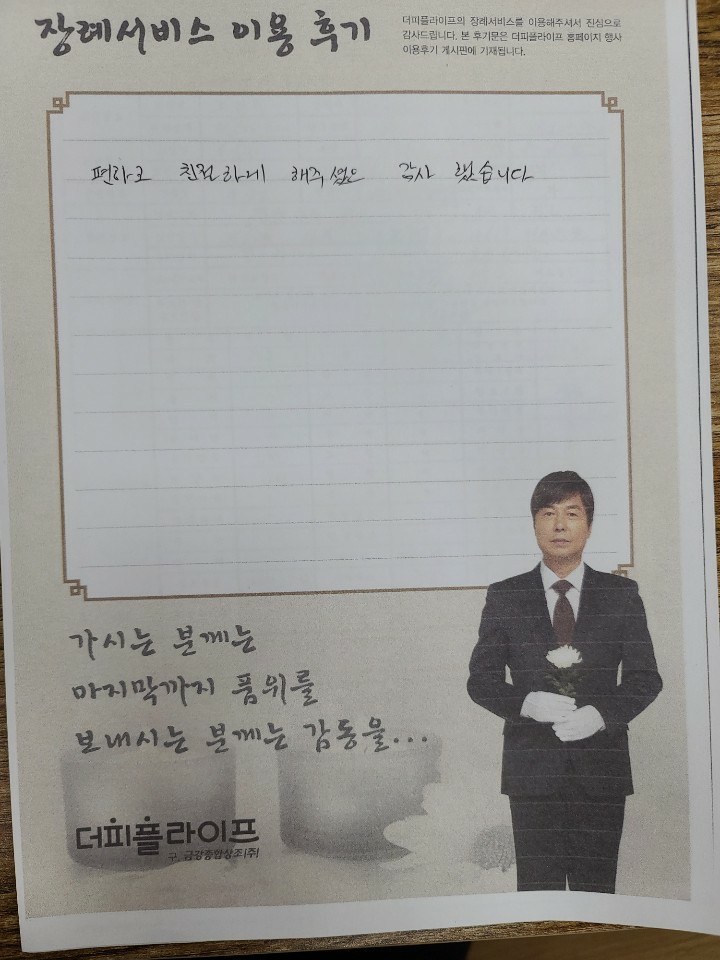 장례서비스 이용 후기
더피플라이프의 장례서비스를 이용해주셔서 진심으로
감사드립니다. 본 후기문은 더피플라이프 홈페이지 행사
이용후기 게시판에 기재됩니다.
편하고 친절하게 해주셨으 감사 했습니다
가시는 분께는
마지막까지 품위를
보내시는 분께는 감동을...
더피플라이프
구. 금강종합상조(주)